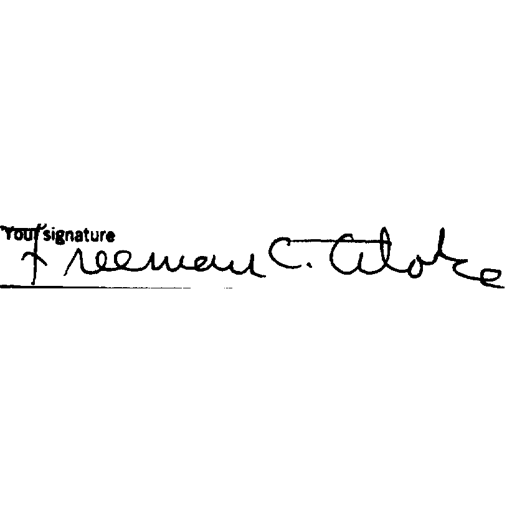 Your signature
Freeman C.